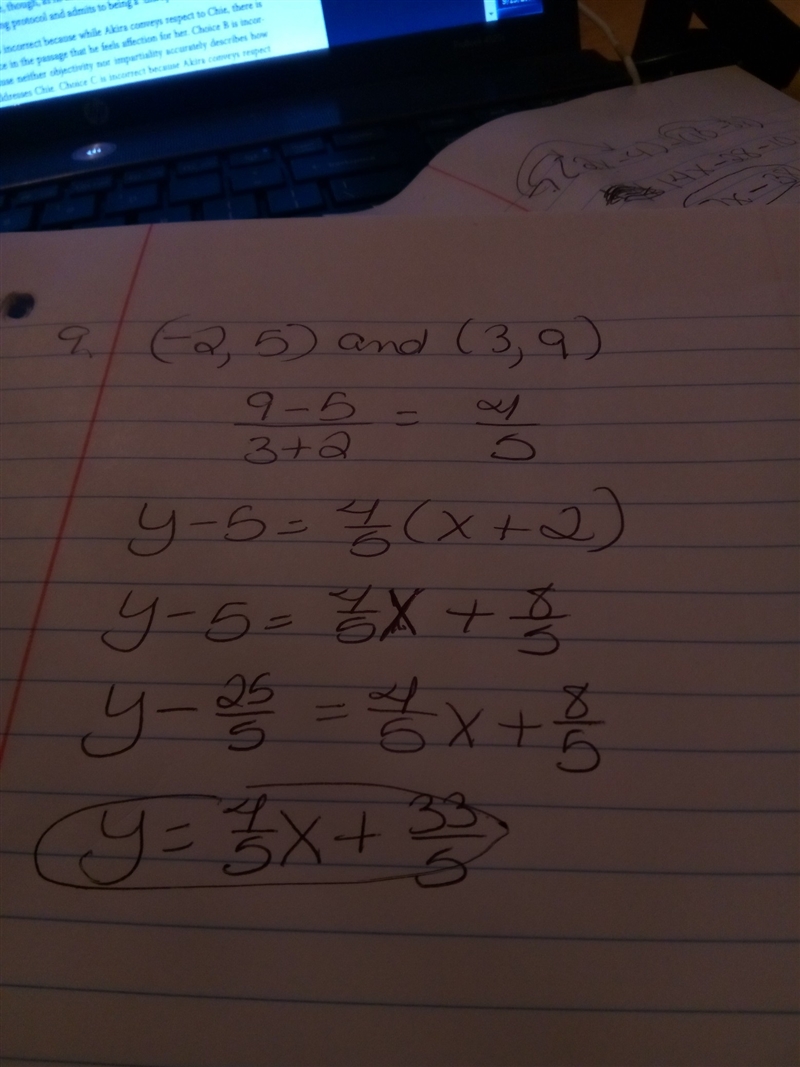 , though, as
ng protocol and admits to being a
incorrect because while Akira conveys respect to Chie, there is
ce in the passage that he feels affection for her. Choice B is incor-
use neither objectivity nor impartiality accurately describes how
ddresses Chie. Choice C is incorrect because Akira conveys respect
hp
9. (-2, 5) and (3, 9)
9-5/3+2 = 4/5
y-5 = 4/5(x+2)
y-5 = 4/5x + 8/5
y - 25/5 = 4/5x + 8/5
y = 4/5x + 33/5